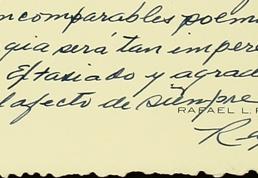 incomparables poem
gia será tan impere
Extasiado y agrade
l afecto de siempre
RAFAEL L. R